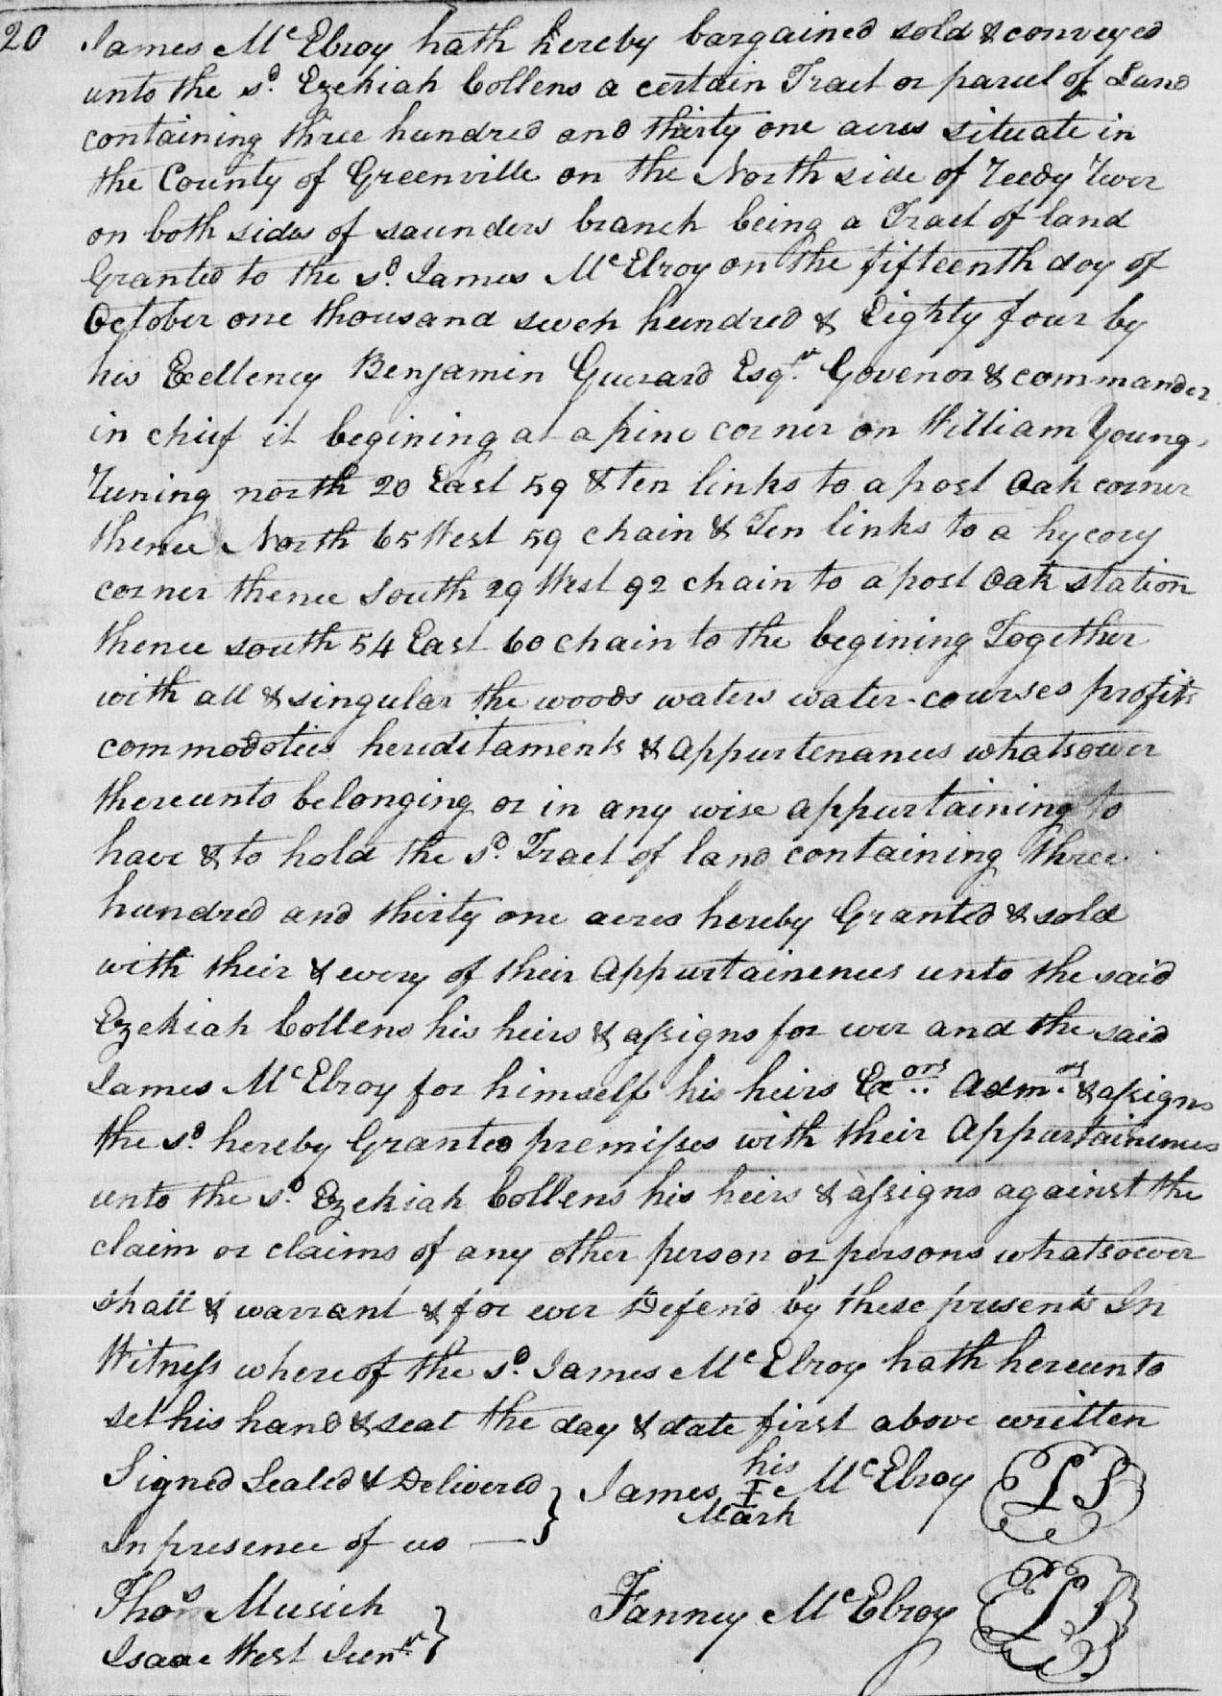 20
James McElroy hath hereby bargained sold & conveyed
unto the sd. Ezekiah Collens a certain Tract or parcel of Land
containing three hundred and thirty one acres situate in
the County of Greenville on the North side of Reedy River
on both sides of saunders branch being a Tract of land
Granted to the sd. James McElroy on the fifteenth day of
October one thousand seven hundred & Eighty four by
his Excellency Benjamin Guerard Esqr. Govenor & commander
in chief it begining at a pine corner on William Young
Runing north 20 East 59 & ten links to a post Oak corner
thence North 65 West 59 chain & Ten links to a hycory
corner thence South 29 West 92 chain to a post Oak station
thence south 54 East 60 chain to the begining Together
with all & singular the woods waters water-courses profits
commodoties hereditaments & appurtenances whatsoever
thereunto belonging or in any wise appurtaining to
have & to hold the sd. Tract of land containing three
hundred and thirty one acres hereby Granted & sold
with their & every of their Appurtainences unto the said
Ezekiah Collens his heirs & assigns for ever and the said
James McElroy for himself his heirs Exors. Admrs. & assigns
the sd. hereby Granted premisses with their Appurtainences
unto the sd. Ezekiah Collens his heirs & assigns against the
claim or claims of any other person or persons whatsoever
shall & warrant & for ever Defend by these presents In
Witness whereof the sd. James McElroy hath hereunto
set his hand & seal the day & date first above written
Signed Sealed & Delivered } James his I Mark McElroy LS
In presence of us
Thos Musich Fanney McElroy LS
Isaac West Junr. }